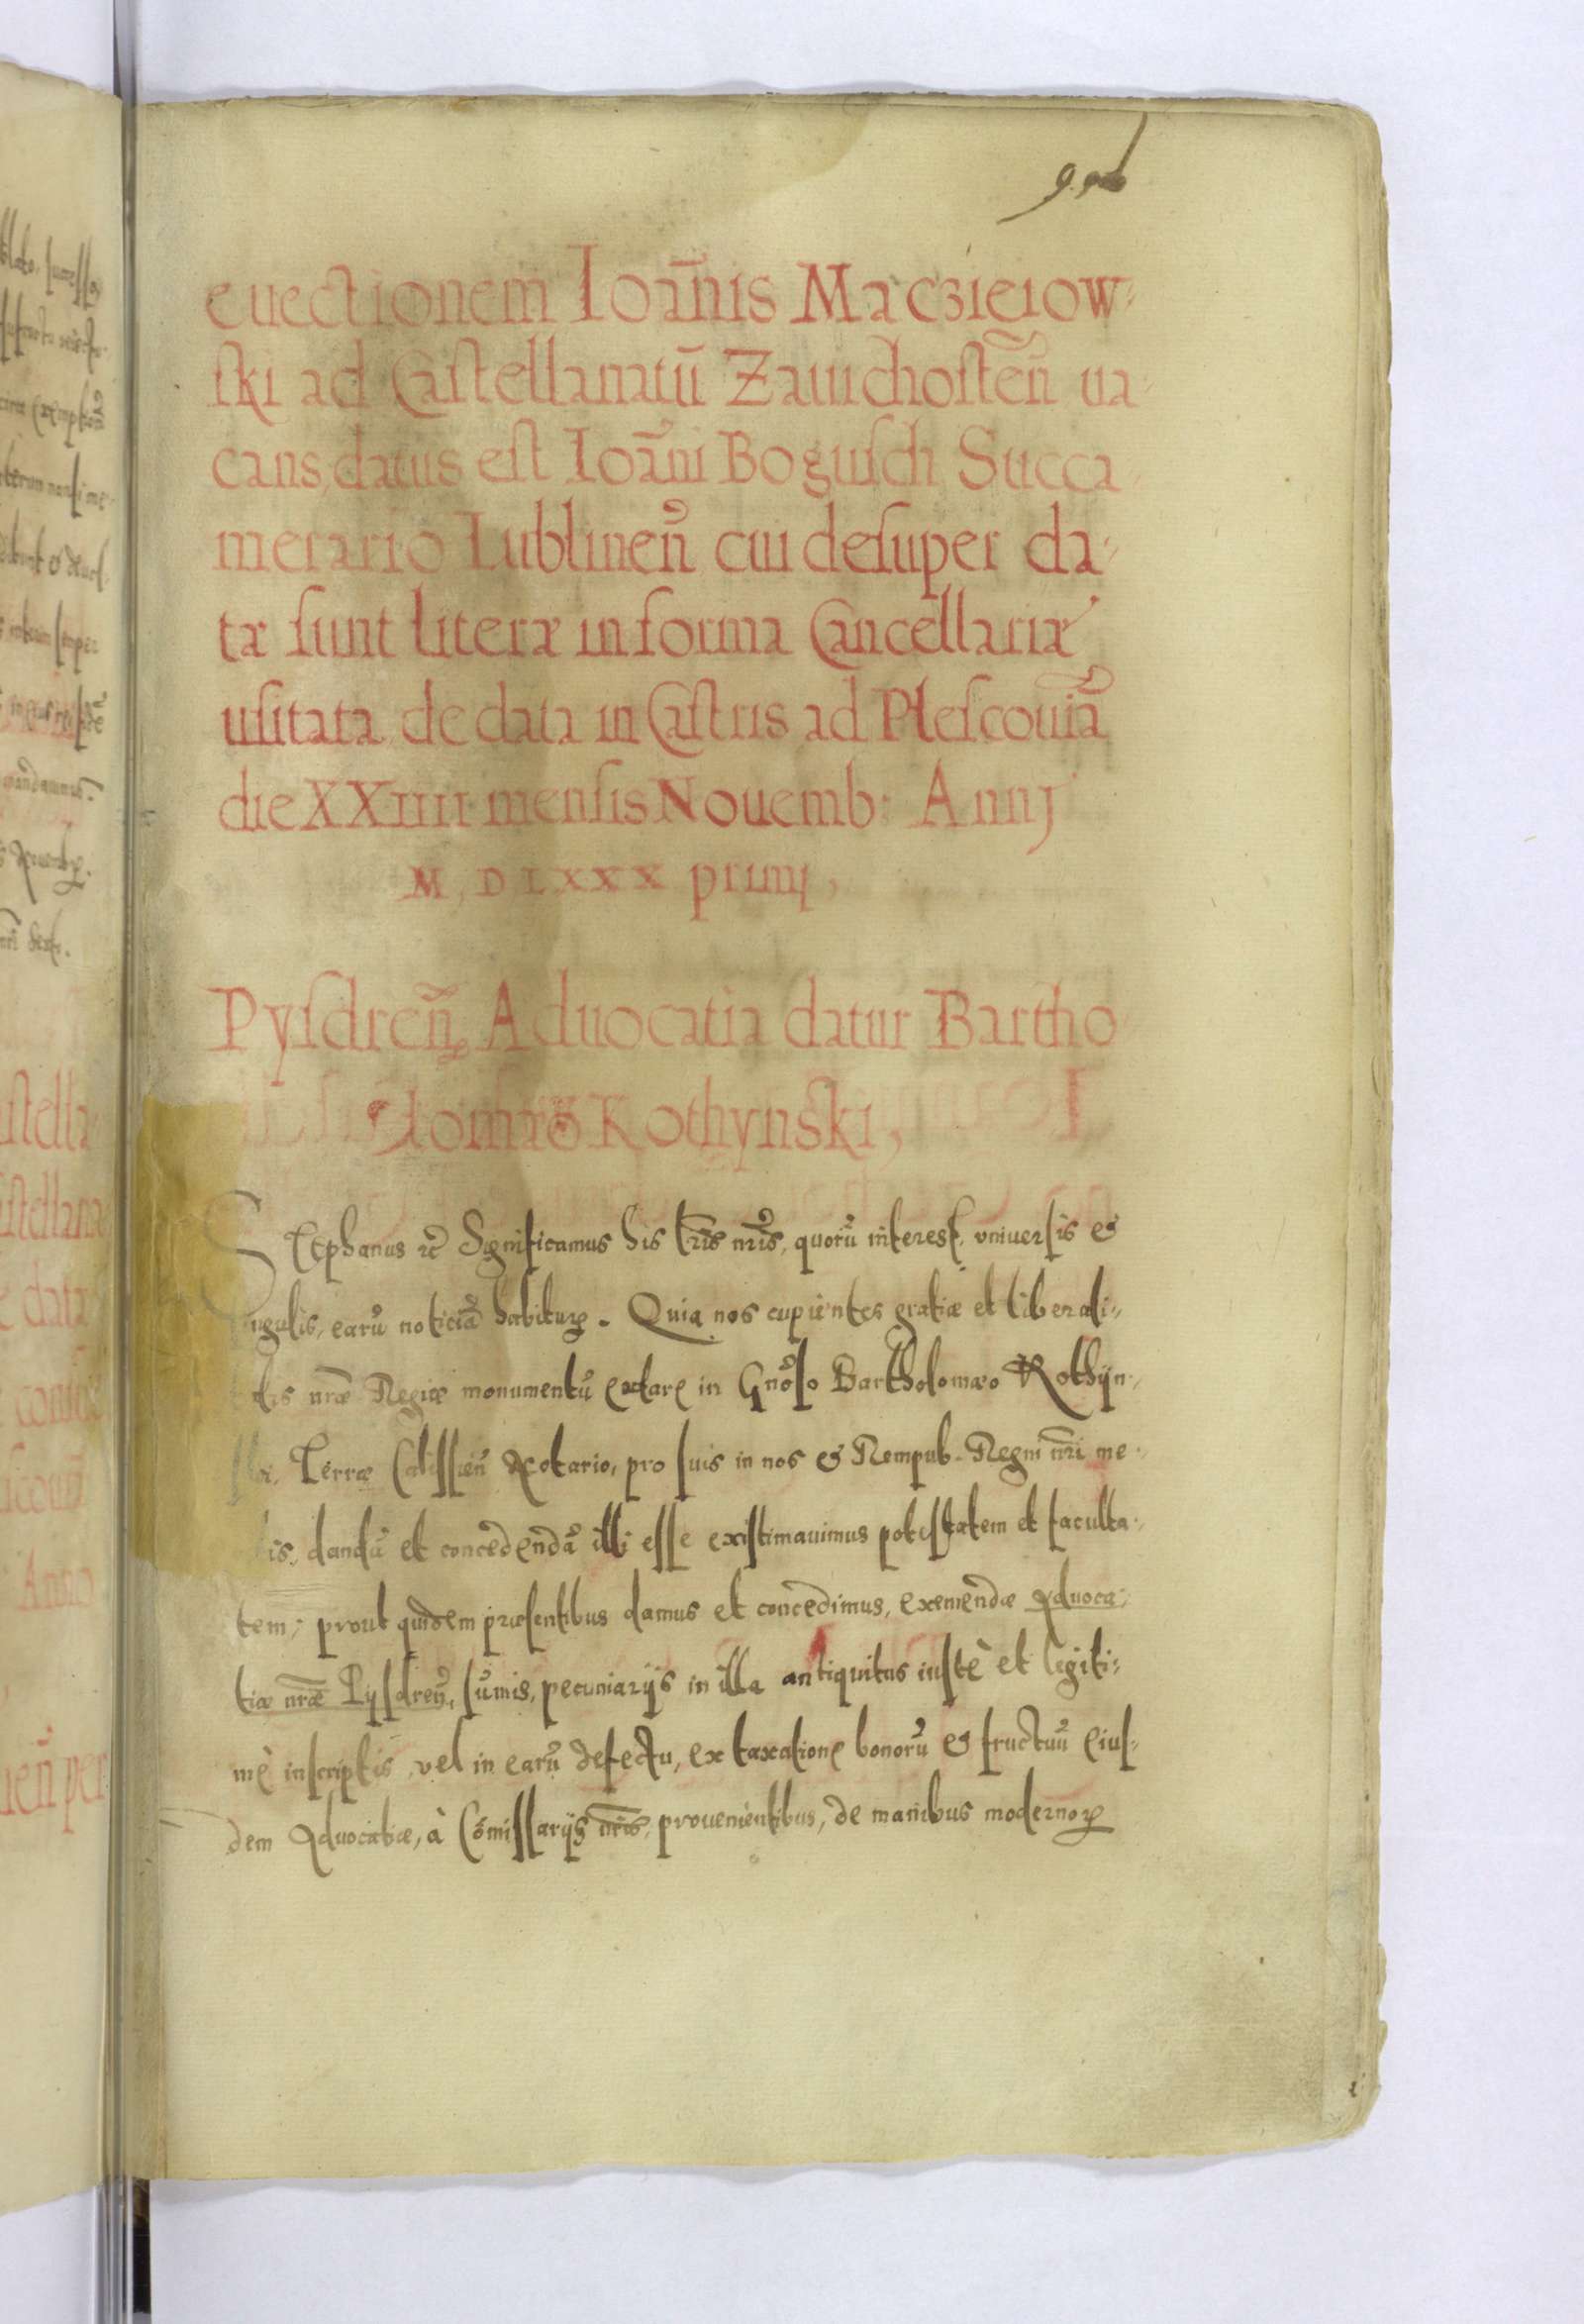 euectionem Ioān̄is Maczieiow-
ſki ad Caſtellanatū Zauichoſten̄ ua-
cans, datus eſt Ioān̄i Boguſch Succa-
merario Lublinen̄ cui deſuper da-
tæ ſunt literæ in forma Cancellariæ
uſitata de data in Caſtris ad Pleſcouiā
die XXIIII menſis Nouemb: Annj
M, D LXXX primj,
Pyſdren̄, Aduocatia datur Bartho
lomæo Kothynski,
Stephanus ꝛc̄ Significamus his lr̄is nr̄is, quorū interest, vniuerſis et
ngulis, earū noticiā habiturꝭ. Quia nos cupientes gratiæ et liberali-
tis nr̄æ Regiæ monumentū extare in Gn̄oſo Bartholomæo Kothÿn-
ſki, Terræ Caliſſien̄ Notario, pro ſuis in nos et Rempub. Regni nr̄i me-
tis, dandā et concedendā illi eſſe exiſtimauimus poteſtatem et faculta-
tem, prout quidem præſentibus damus et concedimus, eximendæ Aduoca-
tiæ nr̄æ Pyſdren̄, ſūmis, pecuniarijs in illa antiquitus iuſtè et legiti-
mè inſcriptis, vel in earū defectu, ex taxatione bonorū et fructuū eiuſ-
dem Aduocatiæ, à Cōmiſſarijs nr̄is, prouenientibus, de manibus modernorꝭ